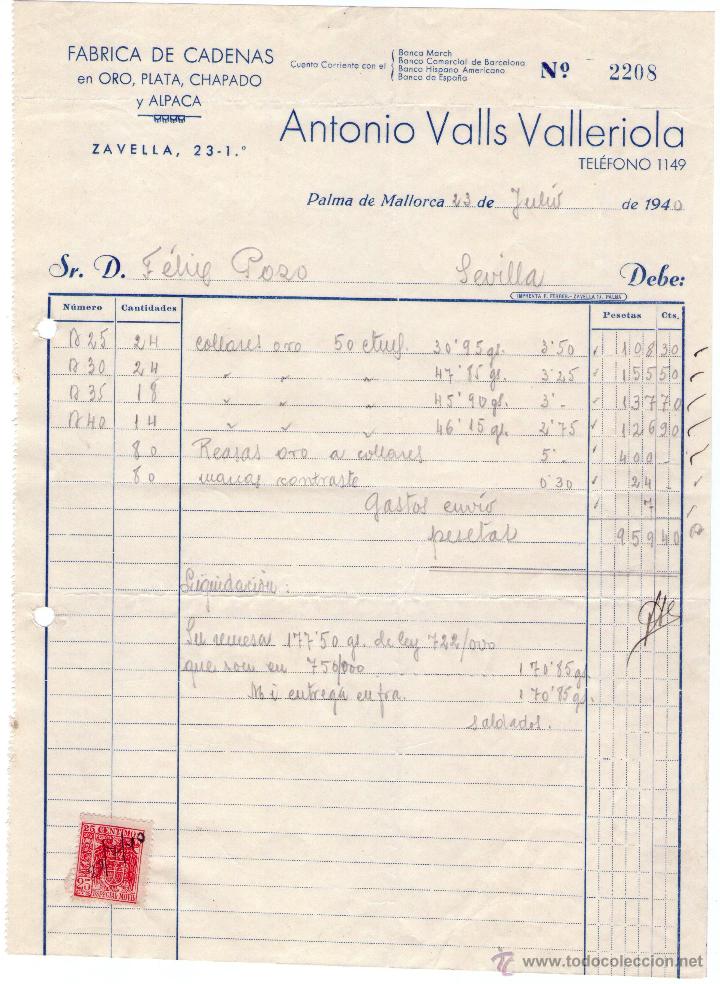 FABRICA DE CADENAS
en ORO, PLATA, CHAPADO
y ALPACA
ZAVELLA, 23-1.º
Cuenta Corriente con el
Banca March
Banco Comercial de Barcelona
Banco Hispano Americano
Banco de España
Nº 2208
Antonio Valls Valleriola
TELÉFONO 1149
Palma de Mallorca 23 de Julio de 1940
Sr. D. Félix Pozo Sevilla Debe:
IMPRENTA F. FERRER.- ZAVELLA 17, PALMA
Número Cantidades Pesetas Cts.
B 25 24 collares oro 50 ctms. 30'95 gs. 3'50 108 30
B 30 24 " " " 47'85 gs. 3'25 155 50
B 35 18 " " " 45'90 gs. 3'- 137 70
B 40 14 " " " 46'15 gs. 2'75 126 90
80 Reasas oro a collares 5'- 400 -
80 marcas contraste 0'30 24 -
Gastos envío 7
pesetas 959 40
Liquidación:
Su remesa 177'50 gs. de ley 722/000
que son en 750/000 170'85 gs.
Mi entrega en fra. 170'85 gs.
saldados.
25 CENTIMOS
ESPECIAL MOVIL
www.todocoleccion.net